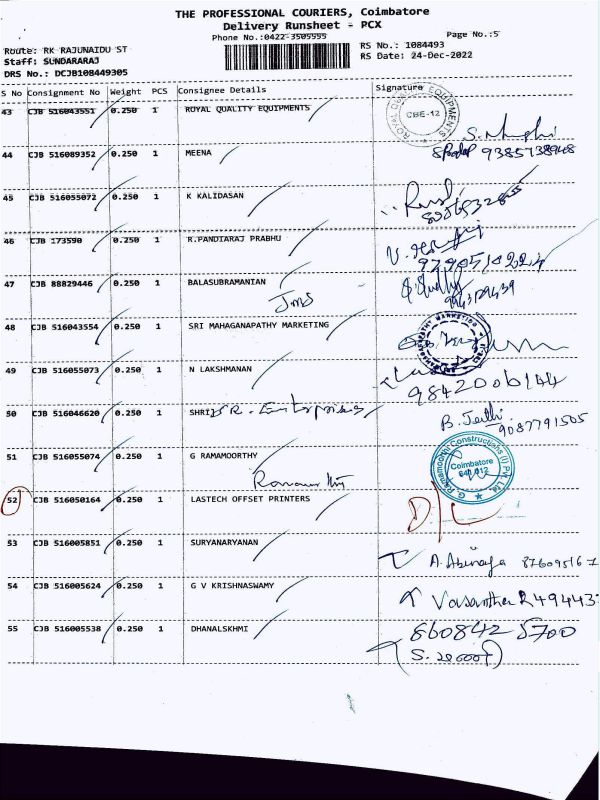 THE PROFESSIONAL COURIERS, Coimbatore
Delivery Runsheet - PCX
Phone No.:0422-3505555
Page No.:5
Route: RK RAJUNAIDU ST
RS No.: 1084493
Staff: SUNDARARAJ
RS Date: 24-Dec-2022
DRS No.: DCJB108449305
S No Consignment No Weight PCS Consignee Details Signature
43 CJB 516043551 0.250 1 ROYAL QUALITY EQUIPMENTS
CBE-12
44 CJB 516089352 0.250 1 MEENA
45 CJB 516055072 0.250 1 K KALIDASAN
46 CJB 173590 0.250 1 R.PANDIARAJ PRABHU
47 CJB 88829446 0.250 1 BALASUBRAMANIAN
48 CJB 516043554 0.250 1 SRI MAHAGANAPATHY MARKETING
49 CJB 516055073 0.250 1 N LAKSHMANAN
9842006144
50 CJB 516046620 0.250 1 SHRI
B. Jothi
9087791505
51 CJB 516055074 0.250 1 G RAMAMOORTHY
G. Ramamoorthi Constructions (I) Pvt Ltd.
Coimbatore
52 CJB 516050164 0.250 1 LASTECH OFFSET PRINTERS
D/L
53 CJB 516005851 0.250 1 SURYANARYANAN
A. Abinaya
54 CJB 516005624 0.250 1 G V KRISHNASWAMY
Vasantha
55 CJB 516005538 0.250 1 DHANALSKHMI
860842 5700